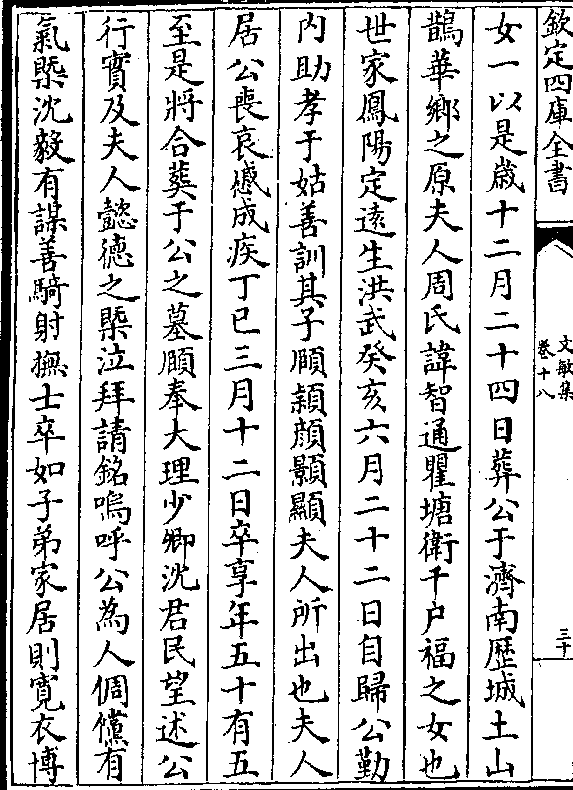 欽定四庫全書
文敏集
卷十八
三十
女一以是歳十二月二十四日葬公于濟南歴城土山
鵲華鄉之原夫人周氏諱智通瞿塘衛千户福之女也
世家鳳陽定遠生洪武癸亥六月二十二日自歸公勤
内助孝于姑善訓其子頤頴顔顥顯夫人所出也夫人
居公喪哀慼成疾丁巳三月十二日卒享年五十有五
至是將合葬于公之墓頤奉大理少卿沈君民望述公
行實及夫人懿德之槩泣拜請銘嗚呼公為人倜儻有
氣槩沈毅有謀善騎射撫士卒如子弟家居則寛衣博